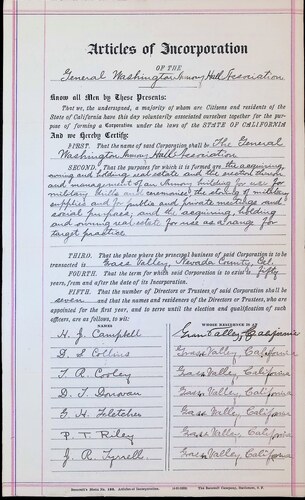 Articles of Incorporation
OF THE
General Washington Armory Hall Association
Know all Men by These Presents:
That we, the undersigned, a majority of whom are Citizens and residents of the
State of California have this day voluntarily associated ourselves together for the purpose
of forming a Corporation under the laws of the STATE OF CALIFORNIA
And we Hereby Certify:
FIRST. That the name of said Corporation shall be The General
Washington Armory Hall Association
SECOND. That the purposes for which it is formed are the acquiring,
owning and holding real estate and the erection thereon
and management of an Armory building for use for
military drills and ceremonies, the storing of military
supplies and for public and private meetings and
social purposes, and the acquiring, holding
and owning real estate for use as a range for
target practice
THIRD. That the place where the principal business of said Corporation is to be
transacted is Grass Valley, Nevada County, Cal.
FOURTH. That the term for which said Corporation is to exist is fifty
years, from and after the date of its Incorporation.
FIFTH. That the number of Directors or Trustees of said Corporation shall be
seven and that the names and residences of the Directors or Trustees, who are
appointed for the first year, and to serve until the election and qualification of
such officers, are as follows, to wit:
NAMES WHOSE RESIDENCE IS
H. J. Campbell Grass Valley, California
D. S. Collins Grass Valley, California
T. R. Cooley Grass Valley, California
D. T. Donovan Grass Valley, California
G. H. Fletcher Grass Valley, California
P. T. Riley Grass Valley, California
J. R. Tyrrell Grass Valley, California
Articles of Incorporation.